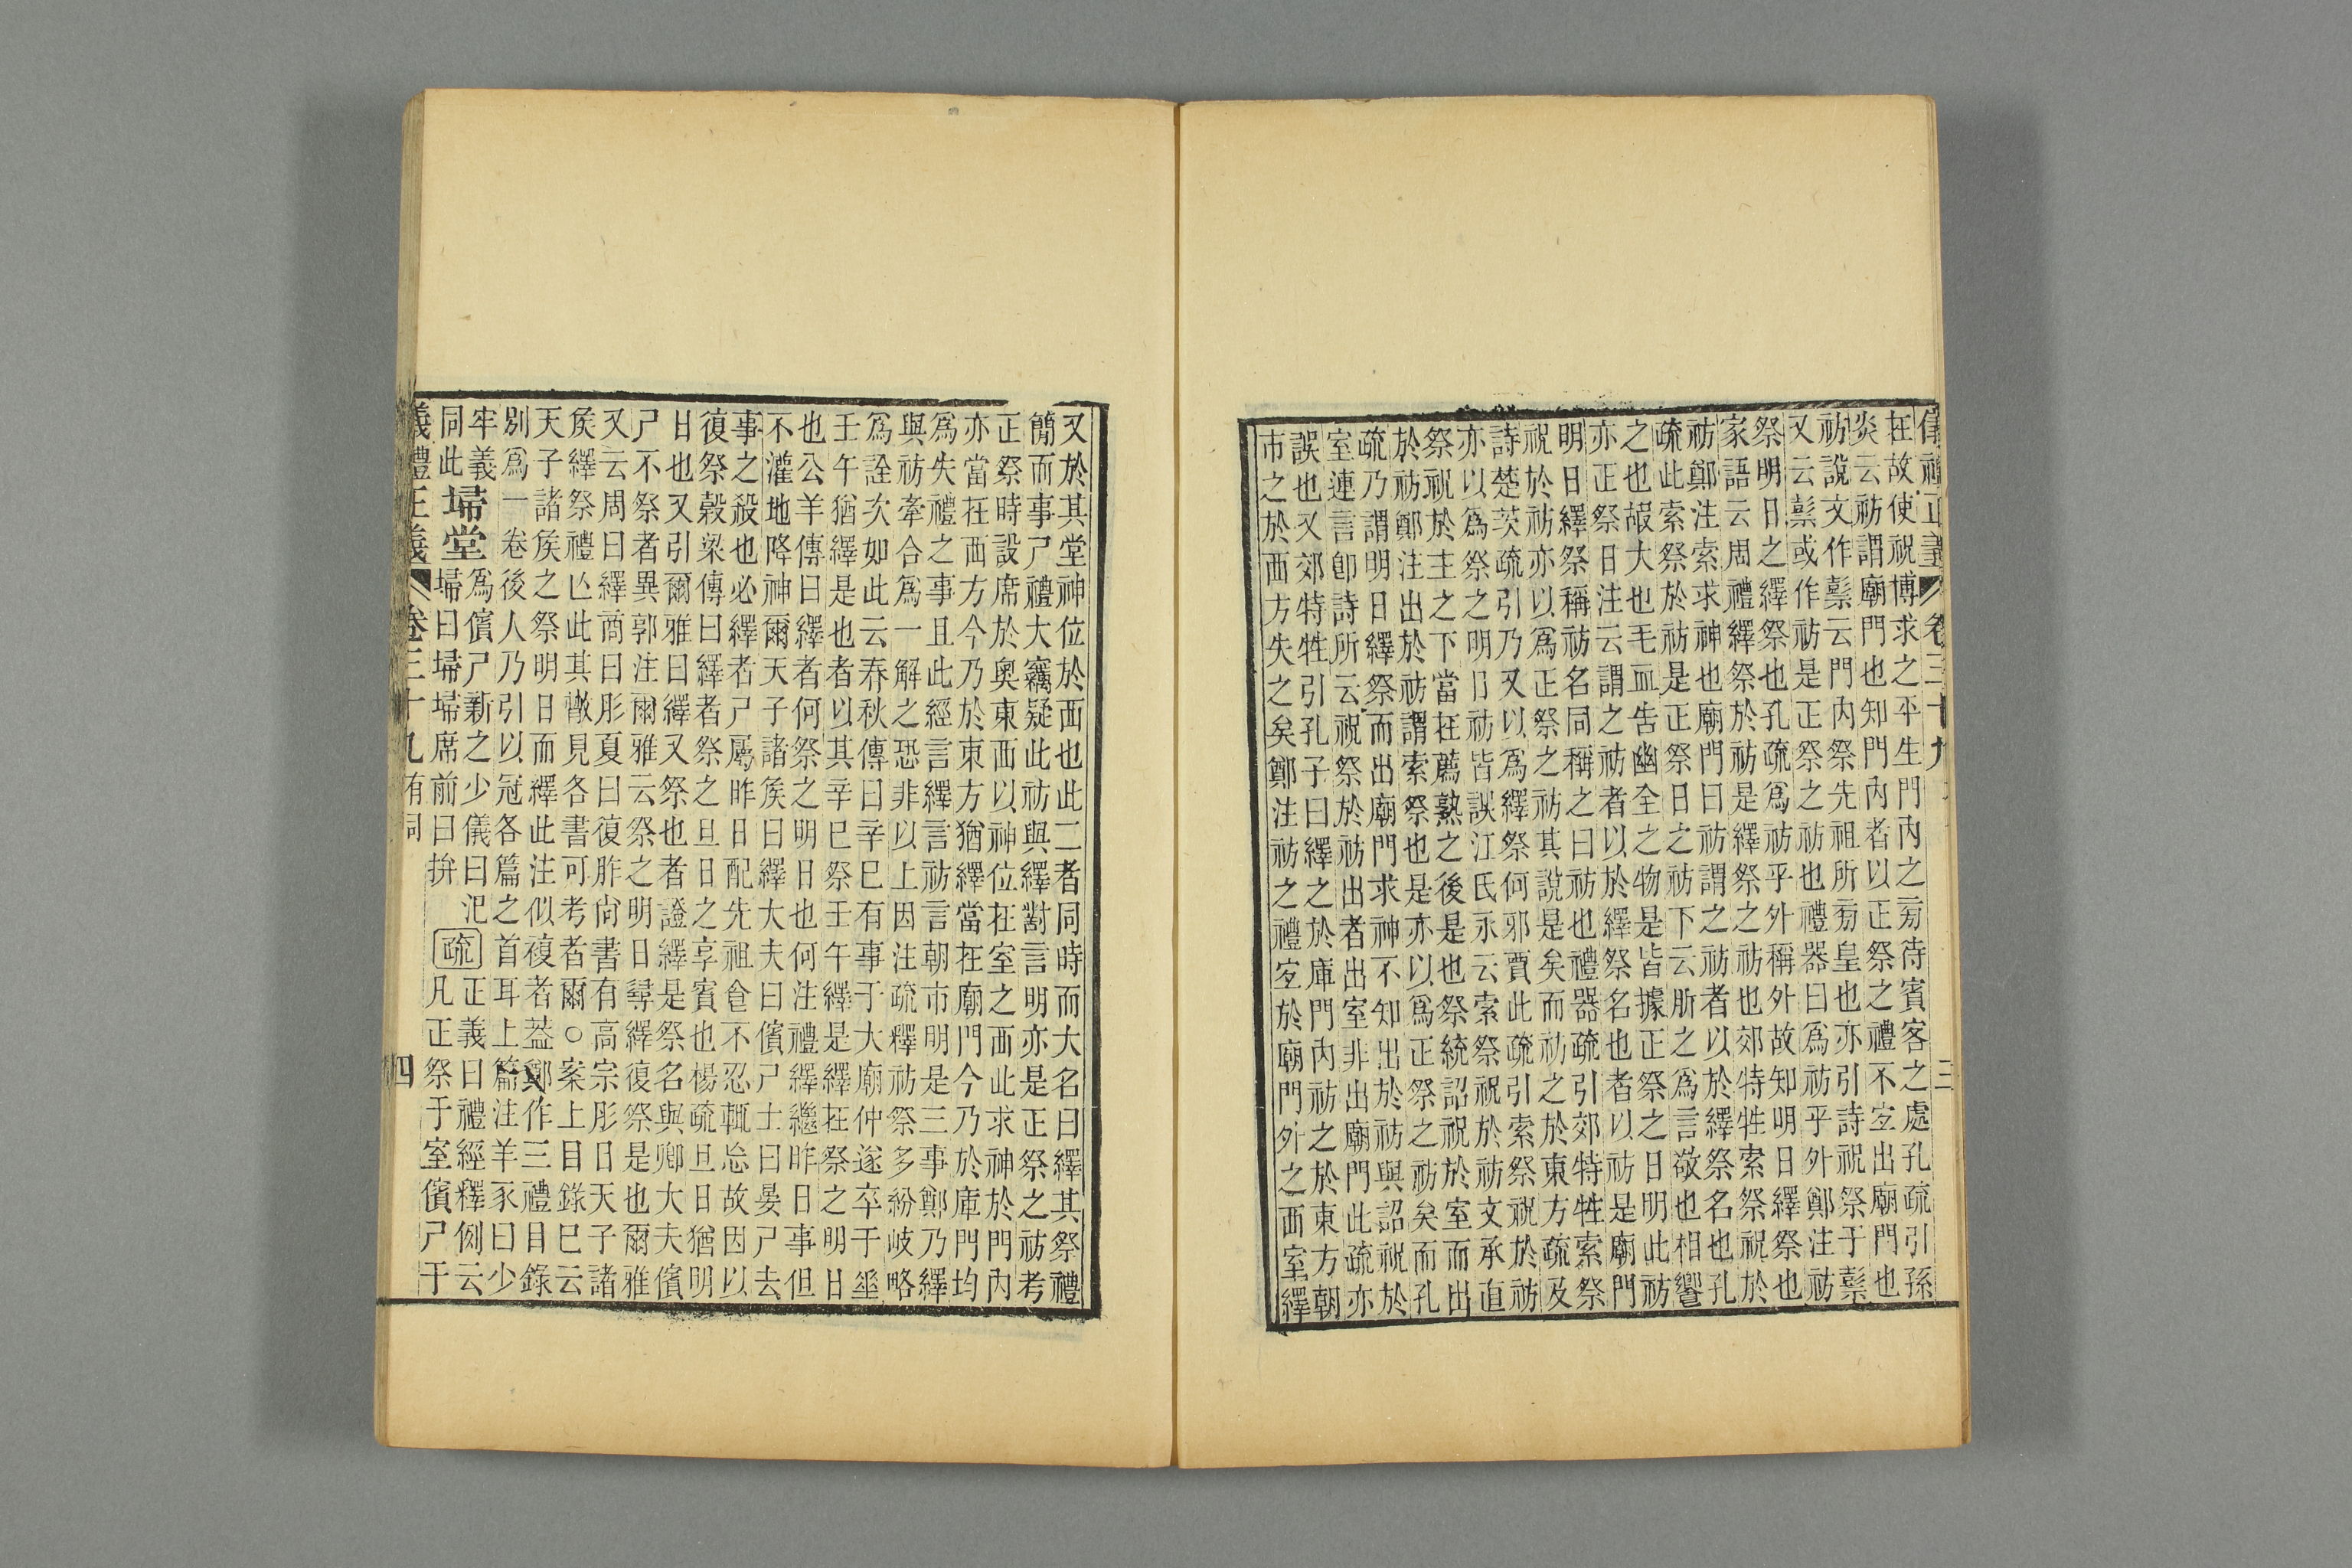 儀禮正義 卷三十九 三
在故使祝博求之平生門內之旁待賓客之處孔疏引孫
炎云祊謂廟門也知門內者以正祭之禮不宜出廟門也
祊說文作𥛱云門內祭先祖所旁皇也亦引詩祝祭于𥛱
又云𥛱或作祊是正祭之祊也禮器曰爲祊乎外鄭注祊
祭明日之繹祭也孔疏爲祊乎外稱外故知明日繹祭也
家語云周禮繹祭於祊是繹祭之祊也郊特牲索祭祝於
祊鄭注索求神也廟門曰祊謂之祊者以於繹祭名也孔
疏此索祭於祊是正祭日之祊下云肵之爲言敬也相饗
之也嘏大也毛血告幽全之物是皆據正祭之日明此祊
亦正祭日注云謂之祊者以於繹祭名也者以祊是廟門
明日繹祭稱祊名同稱之曰祊也禮器疏引郊特牲索祭
祝於祊亦以爲正祭之祊其說是矣而祊之於東方疏及
詩楚茨疏引乃又以爲繹祭何邪賈此疏引索祭祝於祊
亦以爲祭之明日祊皆誤江氏永云索祭祝於祊文承直
祭祝於主之下當在薦熟之後是也祭統詔祝於室而出
於祊鄭注出於祊謂索祭也是亦以爲正祭之祊矣而孔
疏乃謂明日繹祭而出廟門求神不知出於祊與詔祝於
室連言卽詩所云祝祭於祊出者出室非出廟門此疏亦
誤也又郊特牲引孔子曰繹之於庫門內祊之於東方朝
市之於西方失之矣鄭注祊之禮宜於廟門外之西室繹
又於其堂神位於西也此二者同時而大名曰繹其祭禮
簡而事尸禮大竊疑此祊與繹對言明亦是正祭之祊考
正祭時設席於奧東面以神位在室之西此求神於門內
亦當在西方今乃於東方猶繹當在廟門今乃於庫門均
爲失禮之事且此經言繹言祊言朝市明是三事鄭乃繹
與祊牽合爲一解之恐非以上因注疏釋祊祭多紛岐略
爲詮次如此云春秋傳曰辛巳有事于大廟仲遂卒于垂
壬午猶繹是也者以其辛巳祭壬午繹是繹在祭之明日
也公羊傳曰繹者何祭之明日也何注禮繹繼昨日事但
不灌地降神爾天子諸侯曰繹大夫曰儐尸士曰宴尸去
事之殺也必繹者尸屬昨日配先祖食不忍輒忘故因以
復祭穀梁傳曰繹者祭之旦日之享賓也楊疏旦日猶明
日也又引爾雅曰繹又祭也者證繹是祭名與卿大夫儐
尸不祭者異郭注爾雅云祭之明日尋繹復祭是也爾雅
又云周曰繹商曰肜夏曰復胙尚書有高宗肜日天子諸
侯繹祭禮亡此其散見各書可考者爾○案上目錄已云
天子諸侯之祭明日而繹此注似複者蓋鄭作三禮目錄
別爲一卷後人乃引以冠各篇之首耳上篇注羊豕曰少
牢義同此埽堂爲儐尸新之少儀曰汜埽曰埽埽席前曰拚疏正義曰禮經釋例云凡正祭于室儐尸于
儀禮正義 卷三十九 有司 四